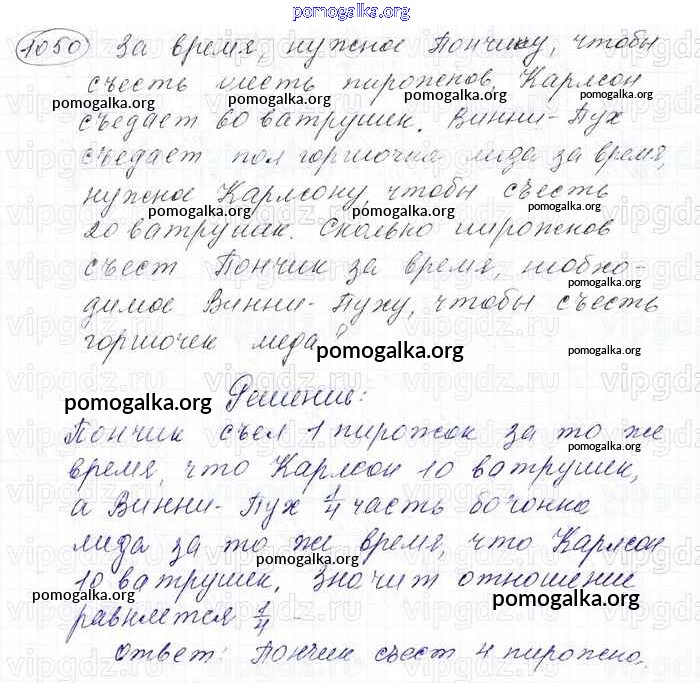 pomogalka.org
1050 За время, нужное Пончику, чтобы
съесть шесть пирожков, Карлсон
pomogalka.org pomogalka.org pomogalka.org
съедает 60 ватрушек. Винни-Пух
съедает пол горшочка мёда за время,
нужное Карлсону, чтобы съесть
pomogalka.org pomogalka.org
20 ватрушек. Сколько пирожков
съест Пончик за время, необхо-
pomogalka.org
димое Винни-Пуху, чтобы съесть
горшочек меда?
pomogalka.org pomogalka.org
Решение:
pomogalka.org
Пончик съел 1 пирожок за то же
pomogalka.org
время, что Карлсон 10 ватрушек,
а Винни-Пух 1/4 часть бочонка
мёда за то же время, что Карлсон
10 ватрушек. Значит отношение
pomogalka.org pomogalka.org
равняется 1/4
Ответ: Пончик съест 4 пирожка.